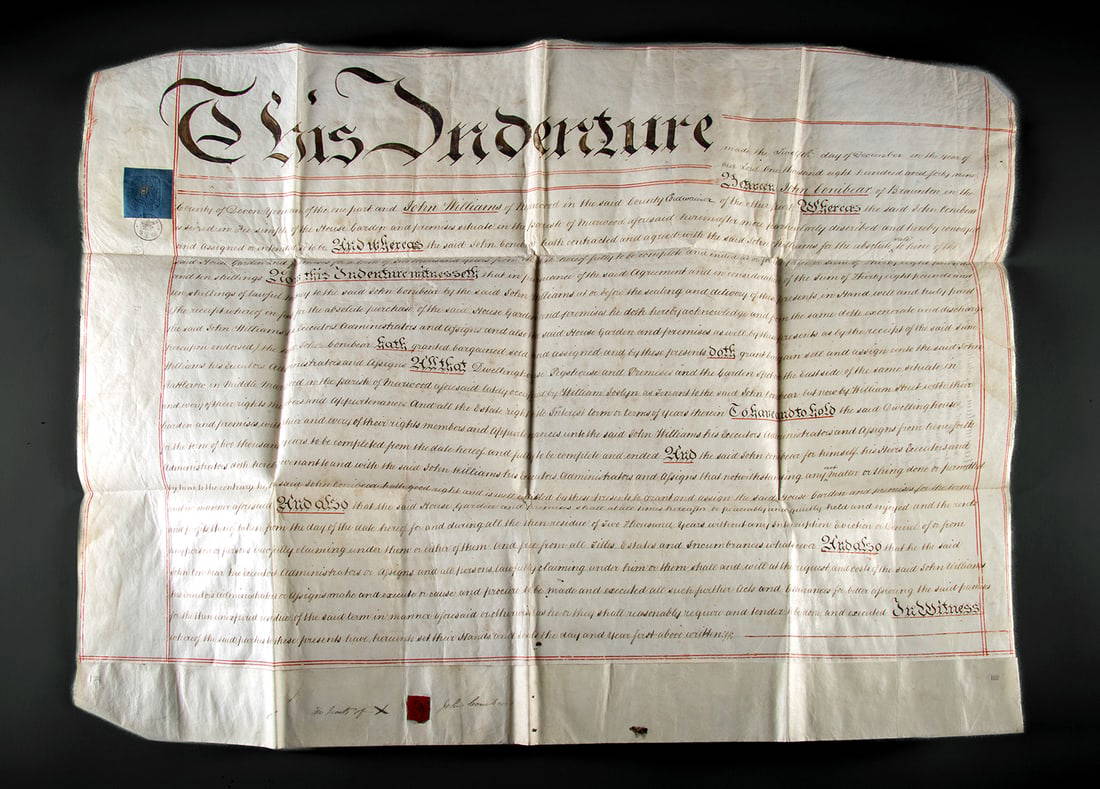 This Indenture
made the Twelfth day of December in the year of
our Lord One thousand eight hundred and forty nine
Between John Conibear of Braunton in the
County of Devon Yeoman of the one part and John Williams of Marwood in the said County of the other part Whereas the said John Conibear
is seized in Fee simple of the House Garden and premises situate in the parish of Marwood aforesaid hereinafter more particularly described and hereby conveyed
and Assigned or intended so to be And whereas the said John Conibear hath contracted and agreed with the said John Williams for the absolute sale to him of the
said House Garden and for the Sum of Thirty eight pounds
and ten shillings Now this Indenture witnesseth that in pursuance of the said Agreement and in consideration of the Sum of Thirty eight pounds and
ten shillings of lawful money to the said John Conibear by the said John Williams at or before the sealing and delivery of these presents in hand well and truly paid
(the receipt whereof in full for the absolute purchase of the said House Garden and premises he doth hereby acknowledge and from the same doth exonerate and discharge
the said John Williams his Executors Administrators and Assigns and also the said House Garden and premises as well by these presents as by the receipt of the said Sum
hereupon endorsed) he the said John Conibear hath granted bargained sold and assigned and by these presents doth grant bargain sell and assign unto the said John
Williams his Executors Administrators and Assigns All that Dwellinghouse Pigshouse and Premises and the Garden Spot on the East side of the same situate in
in Middle Marwood in the parish of Marwood aforesaid lately occupied by William Joslyn as Tenant to the said John Conibear but now by William Street with their
and every of their rights members and Appurtenances And all the Estate right title Interest term or terms of years therein To have and to hold the said Dwellinghouse
Garden and premises with their and every of their rights members and Appurtenances unto the said John Williams his Executors Administrators and Assigns from henceforth
for the term of five thousand years to be completed from the date hereof and fully to be complete and ended And the said John Conibear for himself his Heirs Executors and
Administrators doth hereby covenant to and with the said John Williams his Executors Administrators and Assigns that notwithstanding any Act matter or thing done or permitted
by him to the contrary he the said John Conibear hath good right and is well entitled by these presents to grant and assign the said House Garden and premises for the term
and in manner aforesaid And also that the said House Garden and premises shall at all times hereafter be peaceably and quietly held and enjoyed and the rents
and profits thereof taken from the day of the date hereof for and during all the then residue of Five Thousand Years without any Interruption Eviction or Denial of or from
any person or persons lawfully claiming under them or either of them And free from all Titles Estates and Incumbrances whatsoever And also that he the said
John Conibear his Executors Administrators or Assigns and all persons lawfully claiming under him or them shall and will at the request and costs of the said John Williams
his Executors Administrators or Assigns make and execute or cause and procure to be made and executed all such further Acts and Assurances for better assuring the said premises
for the then unexpired residue of the said term in manner aforesaid or otherwise as he or they shall reasonably require and tender to be done and executed In Witness
whereof the said parties to these presents have hereunto set their Hands and Seals the day and Year first above written
The mark of X John Conibear